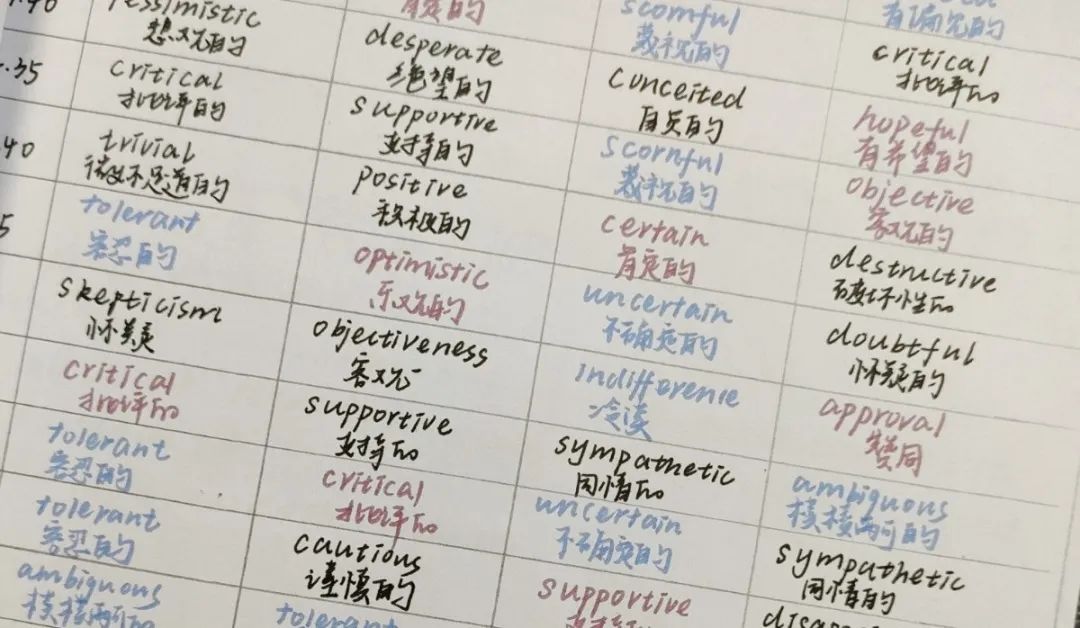 .40
pessimistic
悲观的
肯定的
scornful
蔑视的
有偏见的
.35
critical
批评的
desperate
绝望的
conceited
自负的
critical
批评的
.40
trivial
微不足道的
supportive
支持的
scornful
蔑视的
hopeful
有希望的
5
tolerant
容忍的
positive
积极的
certain
肯定的
objective
客观的
skepticism
怀疑
optimistic
乐观的
uncertain
不确定的
destructive
破坏性的
critical
批评的
objectiveness
客观
indifference
冷漠
doubtful
怀疑的
tolerant
容忍的
supportive
支持的
sympathetic
同情的
approval
赞同
tolerant
容忍的
critical
批评的
uncertain
不确定的
ambiguous
模棱两可的
ambiguous
模棱两可的
cautious
谨慎的
supportive
支持的
sympathetic
同情的
tolerant